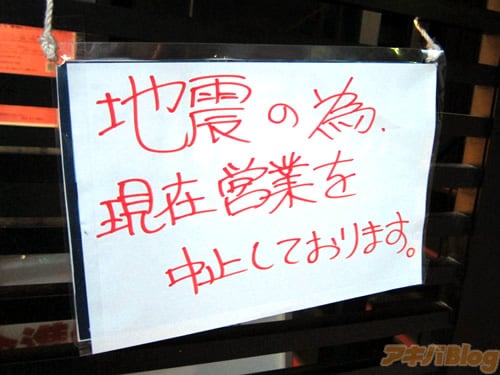 地震の為、
現在営業を
中止しております。
アキバBlog